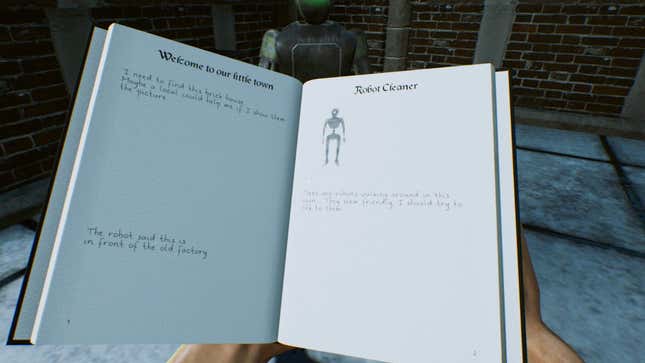 Welcome to our little town
I need to find this brick house
Maybe a local could help me if I show them
the picture
The robot said this is
in front of the old factory
1
Robot Cleaner
There are robots walking around in this
town. They seem friendly, I should try to
talk to them
2